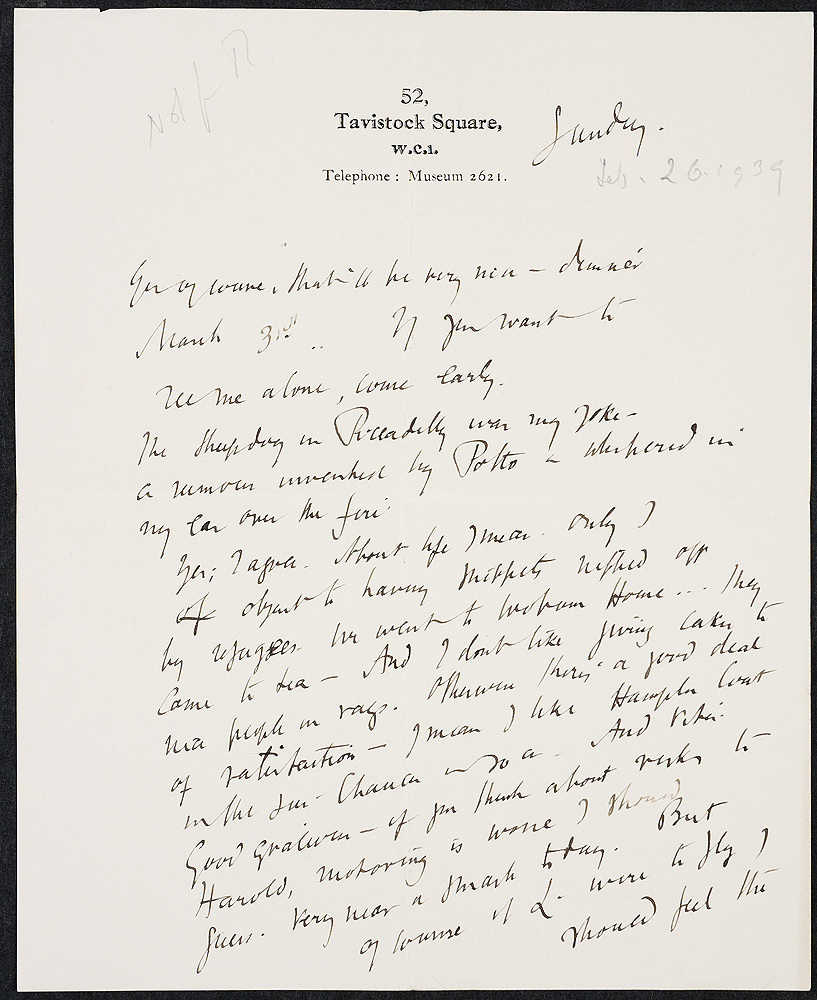 Not for
52,
Tavistock Square,
W.C.1.
Telephone: Museum 2621.
Sunday.
Feb. 26. 1939
Yes of course, that'll be very nice – dinner
March 31st .. If you want to
see me alone, come early.
The sheepdog in Piccadilly was my joke –
a rumour invented by Potto – whispered in
my ear over the fire.
Yes; I agree. About life I mean. Only I
of object to having snippets nipped off
by refugees. We went to Woburn House ... They
came to tea – And I dont like giving cakes to
nice people in rags. Otherwise there's a good deal
of satisfaction – I mean I like Hampton Court
in the sun. Chaucer – so on – And Vita.
Good gracious – if you think about risks to
Harold, motoring is worse I should
guess. Very near a smash today. But
of course if L. were to fly I
should feel the